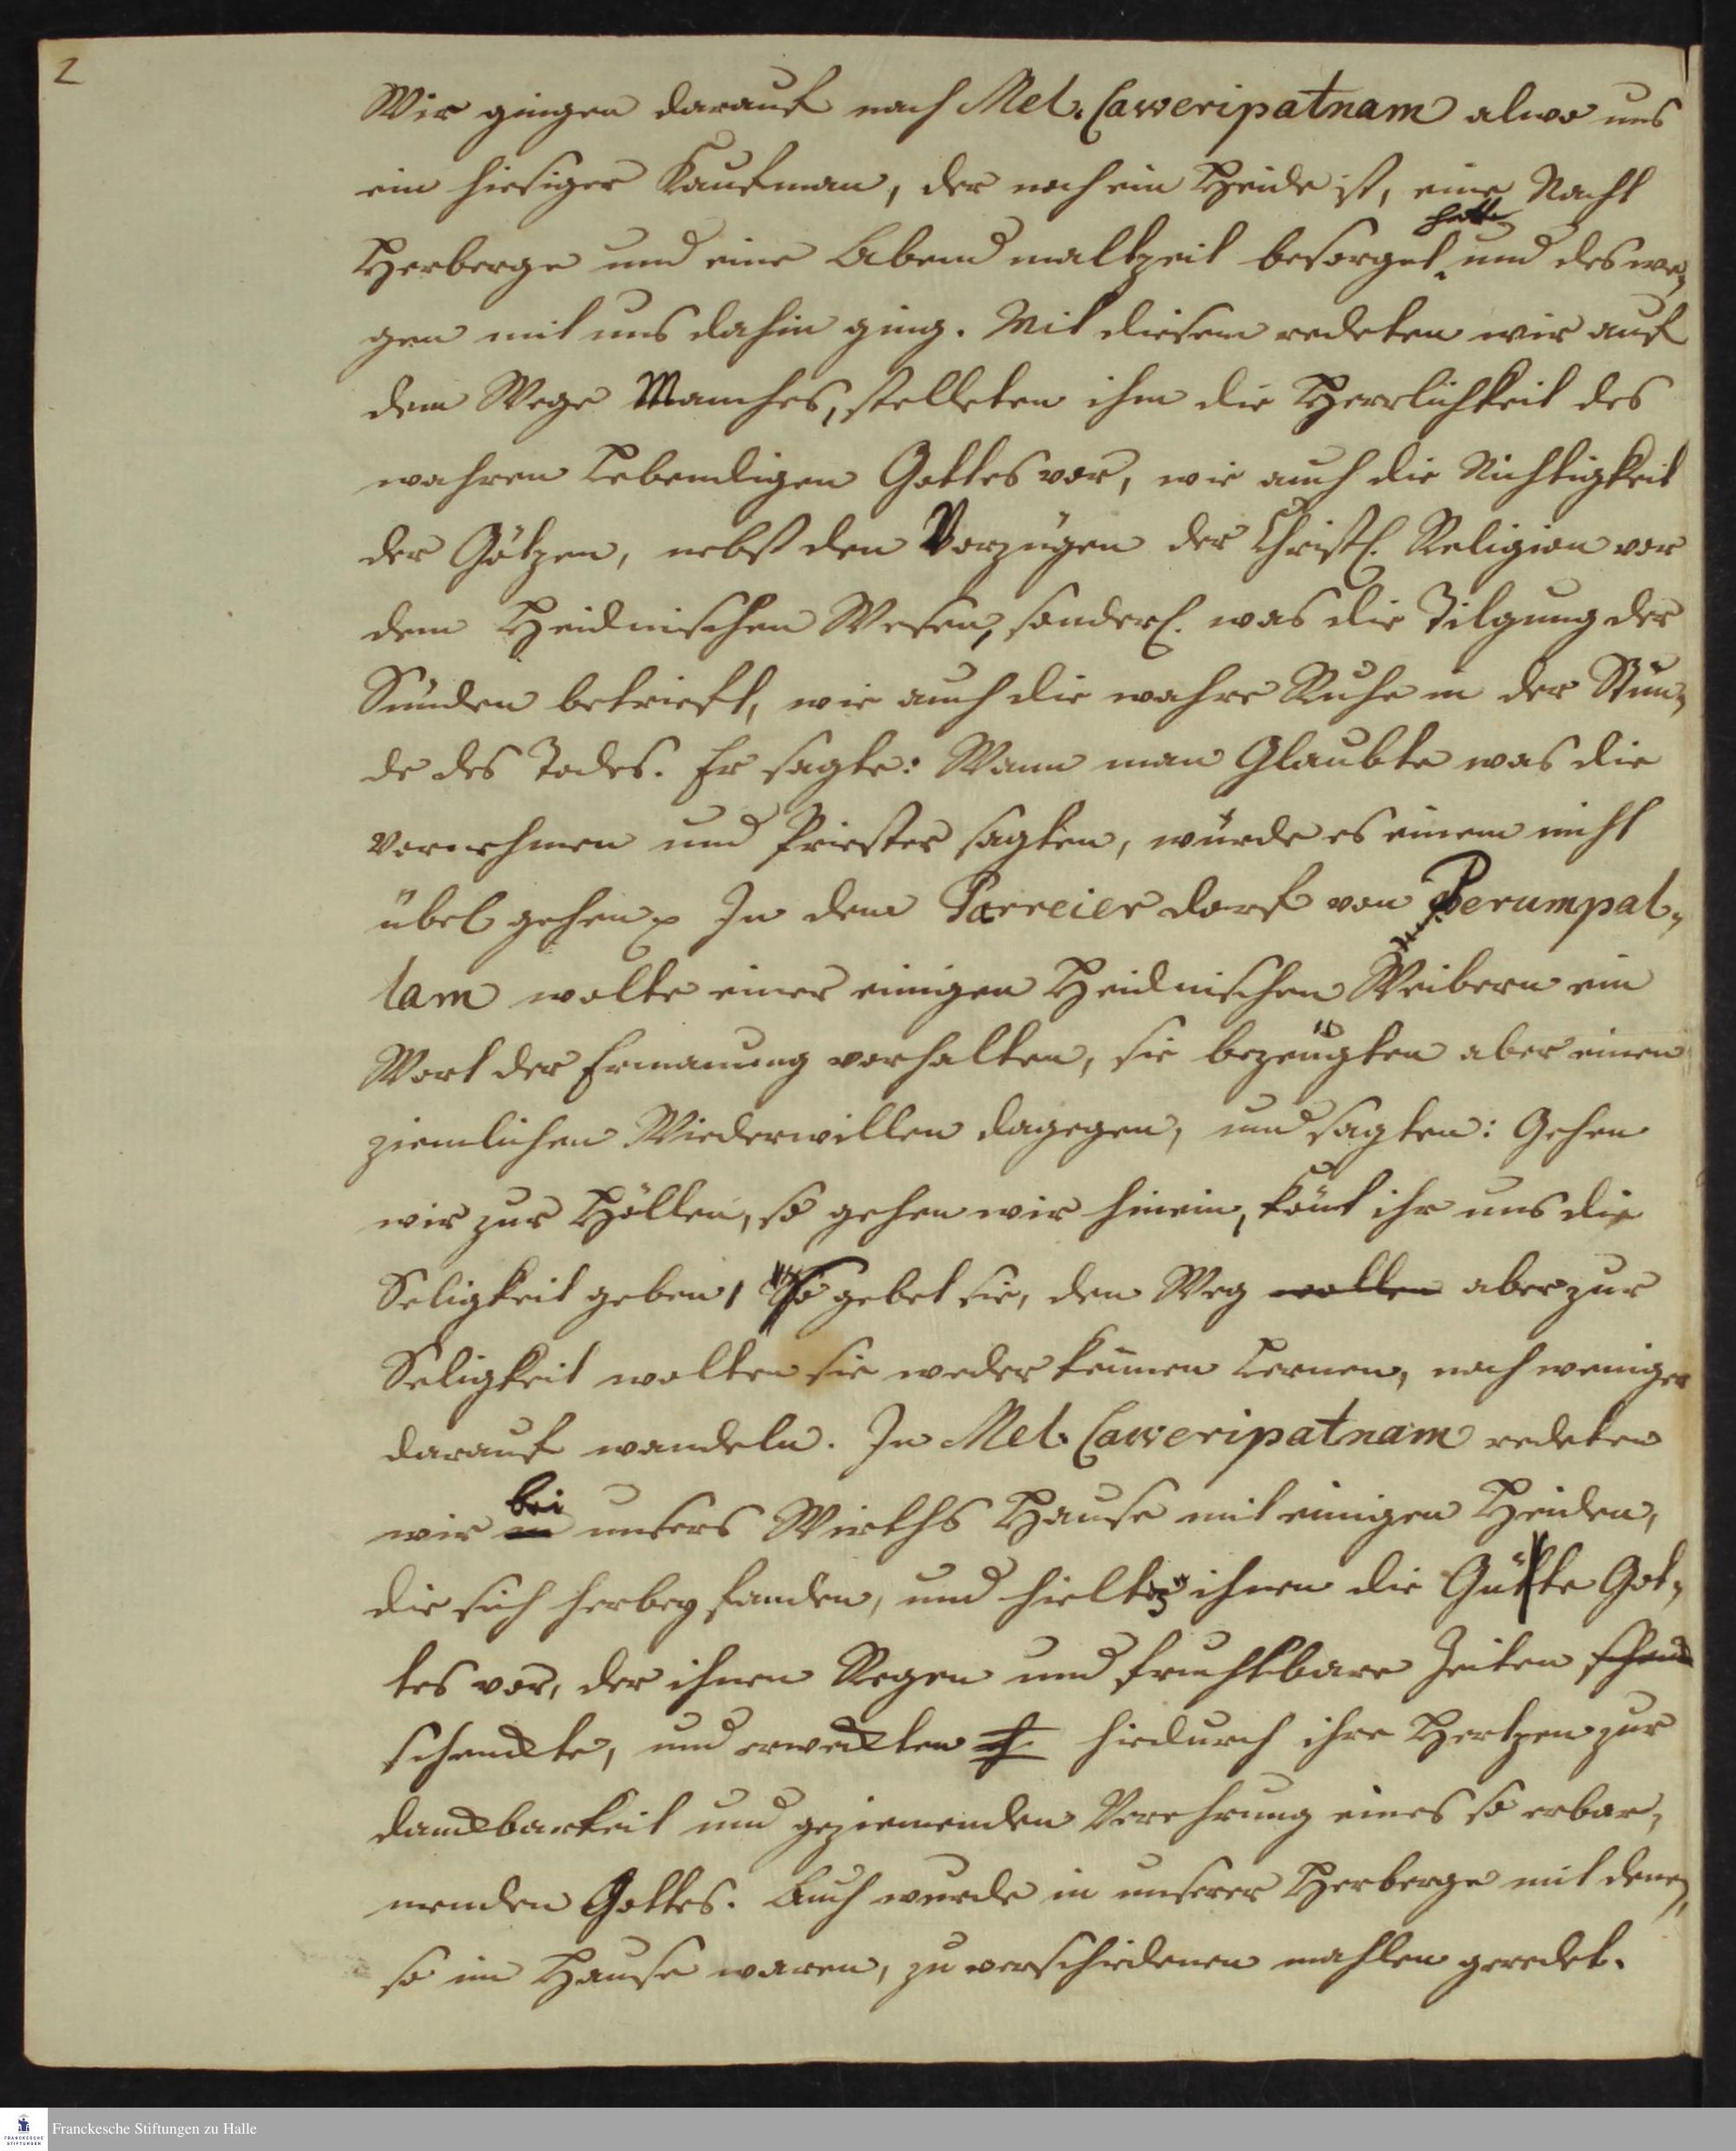 2
Wir gingen darauf nach Mel. Caweripatnam alwo uns
ein hiesiger Kaufman, der noch ein Heide ist, eine Nacht
hatte
Herberge und eine Abend maltzeit besorget und deswe¬
gen mit uns dahin ging. Mit diesem redeten wir auf
dem Wege Manches, stelleten ihm die Herrlichkeit des
wahren Lebendigen Gottes vor, wie auch die Nichtigkeit
der Götzen, nebst den Vorzügen der Christl. Religion vor
dem Heidnischen Wesen, sonderl. was die Tilgung der
Sünden betrieft, wie auch die wahre Ruhe in der Stun¬
de des Todes. Er sagte: Wann man Glaubte was die
Vornehmen und Priester sagten, würde es einem nicht
übel gehen. In dem Parreier dorf von Perumpal¬
lam wolte einer einigen Heidnischen Weibern ein
Wort der Ermanung vorhalten, sie bezeügten aber einen
ziemlichen Wiederwillen dagegen, und sagten: Gehen
wir zur Höllen, so gehen wir hinein, könt ihr uns die
Seligkeit geben, so gebet sie, den Weg wollen aber zur
Seligkeit wolten sie weder kennen Lernen, noch weniger
darauf wandeln. In Mel. Caweripatnam redeten
bei
wir in unsers Wirths Hause mit einigen Heiden,
die sich herbey fanden, und hielten ihnen die Gütte Got¬
tes vor, der ihnen Regen und fruchtbare Zeiten schen
schenckte, und erweckten hiedurch ihre Hertzen zur
danckbarkeit und geziemenden Verehrung eines so erbar¬
menden Gottes. Auch wurde in unserer Herberge mit denen,
so im Hause waren, zu verschiedenen mahlen geredet.
FRANCKESCHE STIFTUNGEN
Franckesche Stiftungen zu Halle